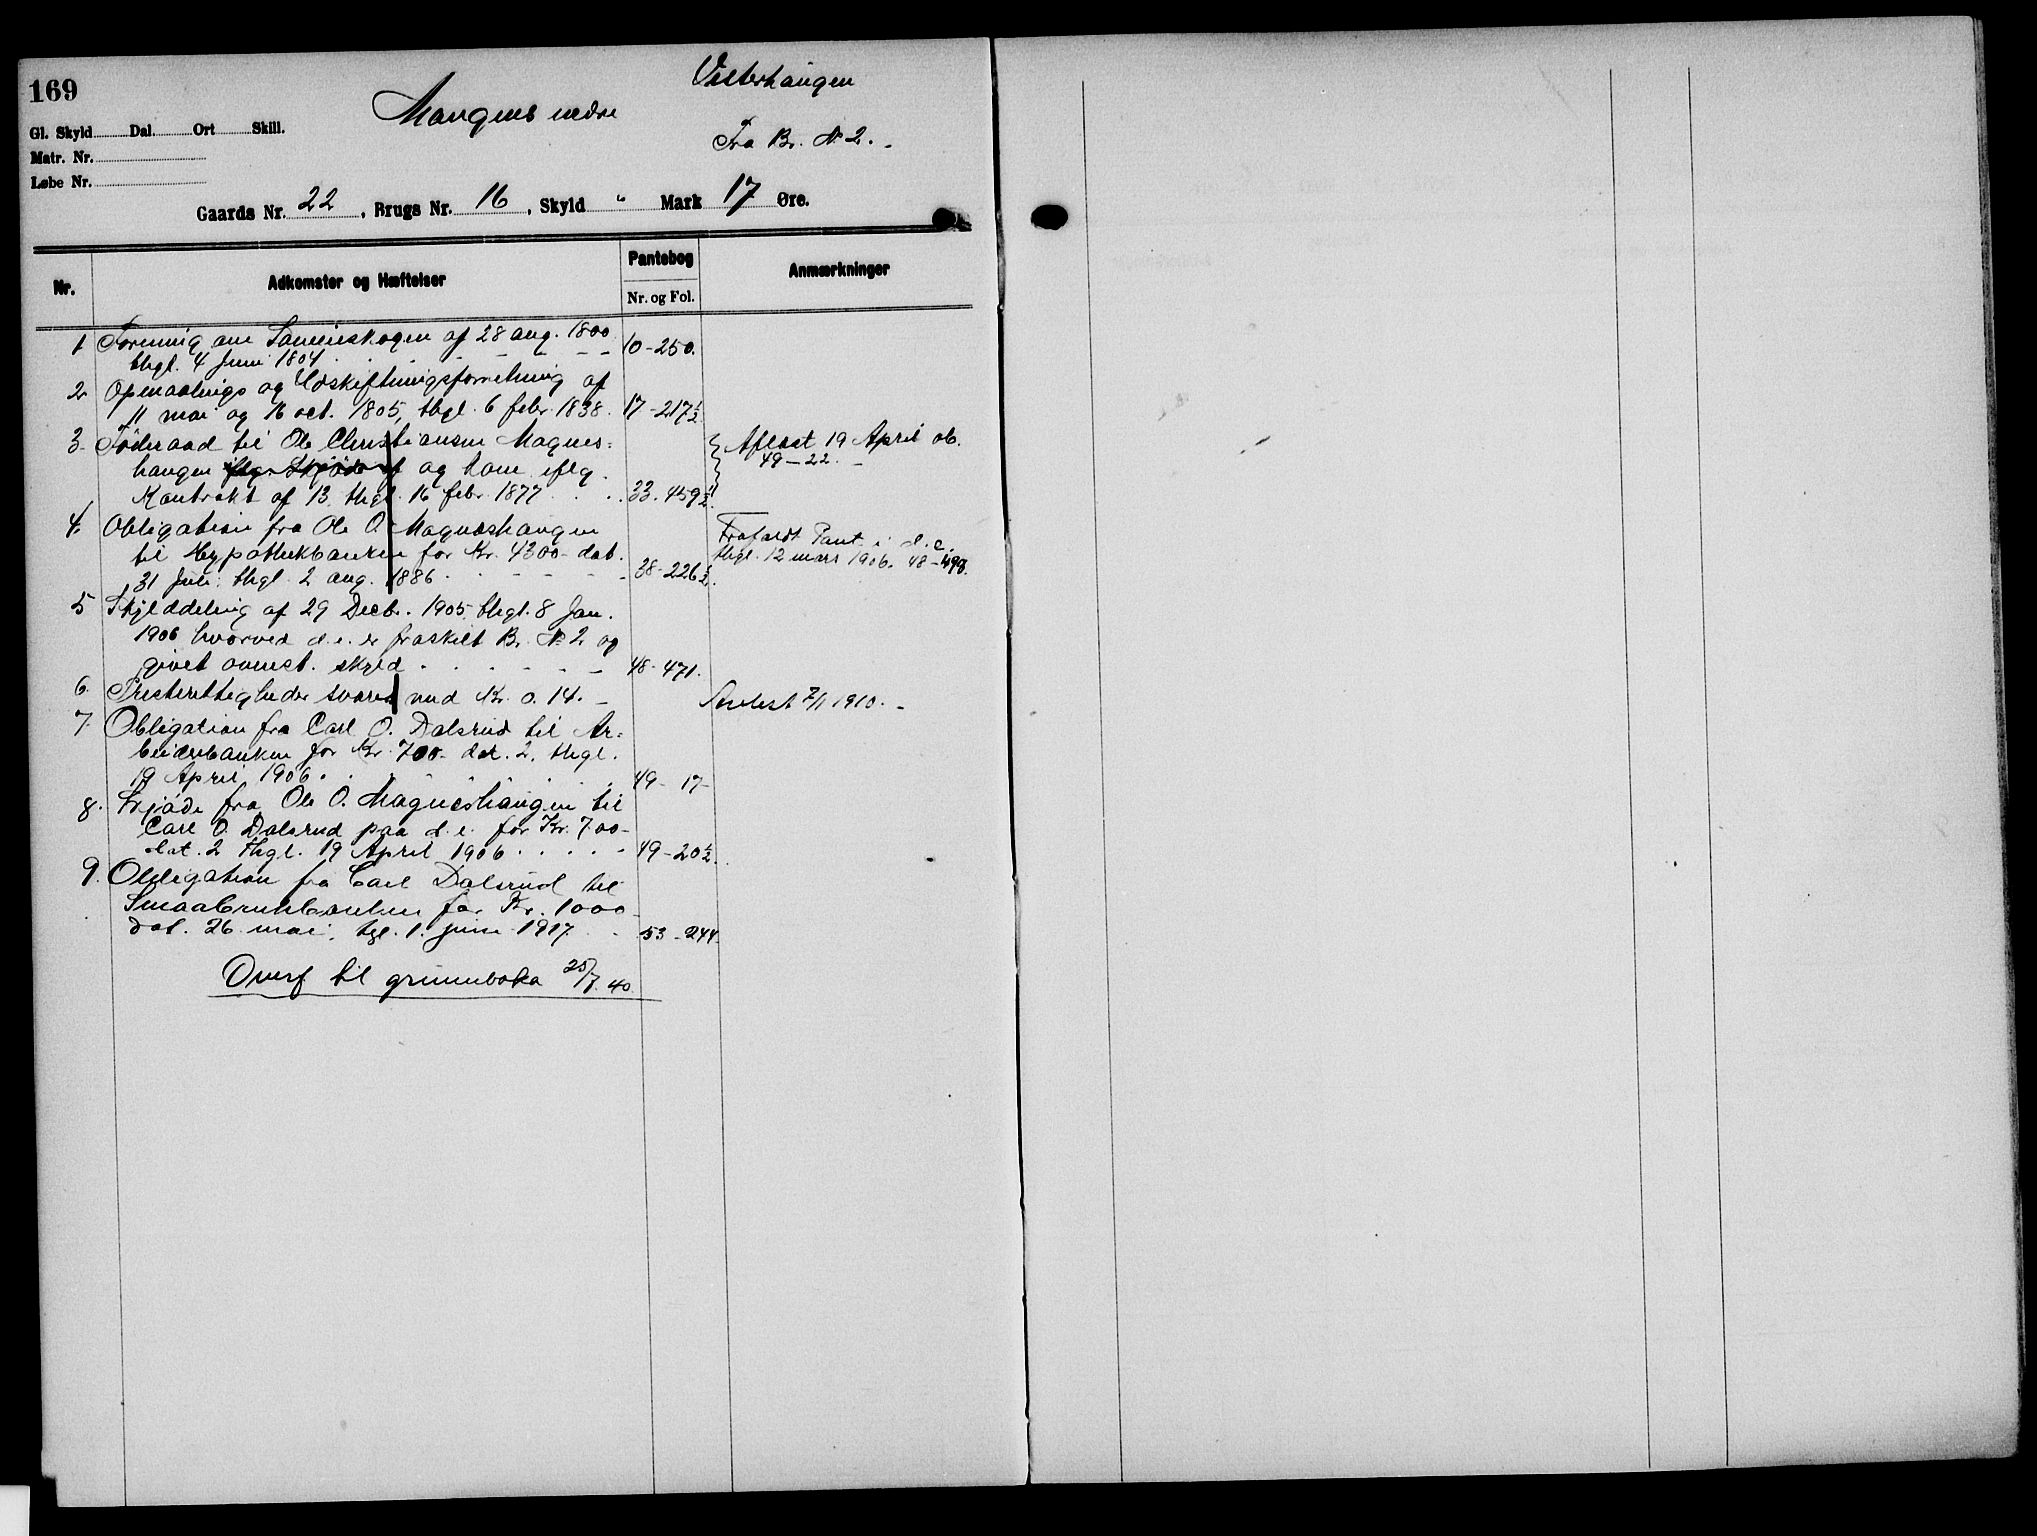 169
Vesterhaugen
Mangens nedre
Fra Br. No 2.
Gl. Skyld Dal. Ort Skill.
Matr. Nr.
Løbe Nr.
Gaards Nr. 22, Brugs Nr. 16, Skyld " Mark 17 Øre.
Nr. Adkomster og Hæftelser Pantebog Nr. og Fol. Anmærkninger
1 Forening om Sameieskogen af 28 aug. 1800
thgl. 4 Juni 1804 10-250.
2 Opmaalings og Udskiftningsforretning af
11 mai og 16 oct. 1805, thgl. 6 febr. 1838. 17-217½
3. Föderaad til Ole Christiansen Magnes= Aflæst 19 April 06.
haugen ifлg. Skjøde af og kone iflg. 49-22.
Kontrakt af 13. thgl. 16 febr. 1877 33.459½.
4. Obligation fra Ole O. Magneshaugen Frafaldt Pant i d.e.
til Hypothekbanken for Kr. 4300- dat. thgl. 12 mars 1906. 48-498.
31 Juli thgl. 2 aug. 1886 38-226½.
5 Skylddeling af 29 Decbr. 1905, thgl. 8 Jan.
1906 hvorved d.e. er fraskilt Br. No 2 og
givet ovenst. skyld 48-471.
6. Presterettigheder svares med Kr. 0.14. 7/1 1910.
7. Obligation fra Carl O. Dalsrud til Ar=
beiderbanken for Kr. 700- dat. 2, thgl.
19 April 1906. 49-17-
8. Skjøde fra Ole O. Magneshaugen til
Carl O. Dalsrud paa d.e. for Kr. 700-
dat. 2 thgl. 19 April 1906 49-20½.
9. Obligation fra Carl Dalsrud til
Smaabrukbanken for Kr. 1000-
Dat. 26 mai, tgl. 1. juni 1917 53-244-
Overf til grunnboka 25/7.40.